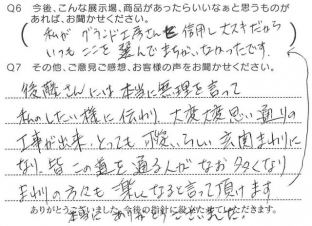 Q6 今後、こんな展示場、商品があったらいいなぁと思うものが
あれば、お聞かせください。
私が グランド工房さんを信用してスキだから
いつもここを選んでまちがいなかったです。
Q7 その他、ご意見ご感想、お客様の声をお聞かせください。
後醍さんには本当に無理を言って
私のしたい様に伝わり 大変大変思い通りの
工事が出来、とっても 可愛いらしい 玄関まわりに
なり、皆 この道を通る人がなお多くなり
まわりの方々も 楽しくなると言って頂けます
ありがとうございました。今後の指針に役立たせていただきます。
本当に ありがとうございました。